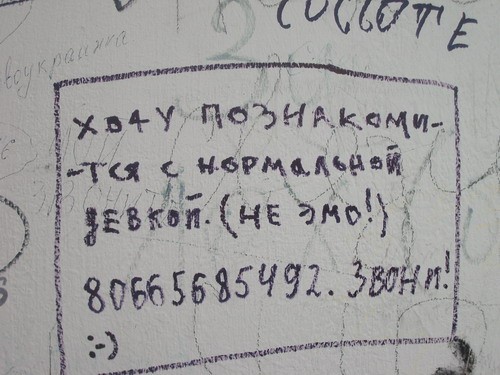 СОСЕТЕ
ХОЧУ ПОЗНАКОМИ-
-ТСЯ С НОРМАЛЬНОЙ
ДЕВКОЙ. (НЕ ЭМО!)
80665685492. ЗВОНИ!
:-)